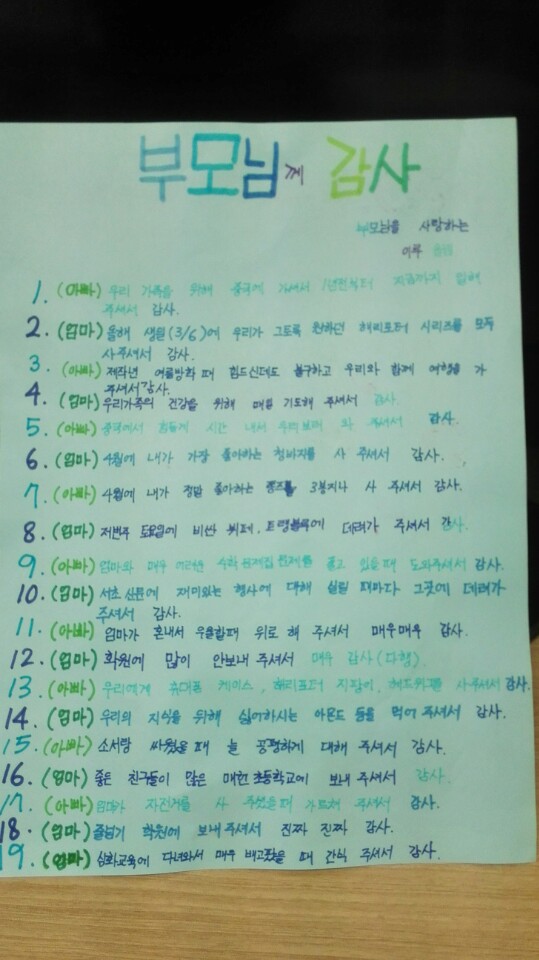 부모님께 감사
부모님을 사랑하는
이루
1. (아빠) 우리 가족을 위해 중국에 가셔서 1년전부터 지금까지 일해
주셔서 감사.
2. (엄마) 올해 생일(3/6)에 우리가 그토록 원하던 해리포터 시리즈를 모두
사주셔서 감사.
3. (아빠) 제작년 여름방학 때 힘드신데도 불구하고 우리와 함께 여행을 가
주셔서 감사.
4. (엄마) 우리가족의 건강을 위해 매일 기도해 주셔서 감사.
5. (아빠) 중국에서 힘들게 시간 내서 우리보러 와 주셔서 감사.
6. (엄마) 4월에 내가 가장 좋아하는 청바지를 사 주셔서 감사.
7. (아빠) 4월에 내가 정말 좋아하는 3봉지나 사 주셔서 감사.
8. (엄마) 저번주 토요일에 비싼 뷔페, 드랭블루에 데려가 주셔서 감사.
9. (아빠) 엄마와 매우 어려운 수학문제집 문제를 풀고 있을때 도와주셔서 감사.
10. (엄마) 서초 신문에 재미있는 행사에 대해 실릴 때마다 그곳에 데려가
주셔서 감사.
11. (아빠) 엄마가 혼내서 우울할때 위로 해 주셔서 매우매우 감사.
12. (엄마) 학원에 많이 안보내 주셔서 매우 감사(다행)
13. (아빠) 우리에게 휴대폰 케이스, 해리포터 지팡이, 헤드위그를 사주셔서 감사.
14. (엄마) 우리의 지식을 위해 싫어하시는 아몬드 등을 먹어 주셔서 감사.
15. (아빠) 소서랑 싸웠을 때 늘 공평하게 대해 주셔서 감사.
16. (엄마) 좋은 친구들이 많은 매헌초등학교에 보내 주셔서 감사.
17. (아빠) 엄마가 자전거를 사 주셨을때 가르쳐 주셔서 감사.
18. (엄마) 줄넘기 학원에 보내 주셔서 진짜 진짜 감사.
19. (엄마) 심화교육에 다녀와서 매우 배고팠을 때 간식 주셔서 감사.